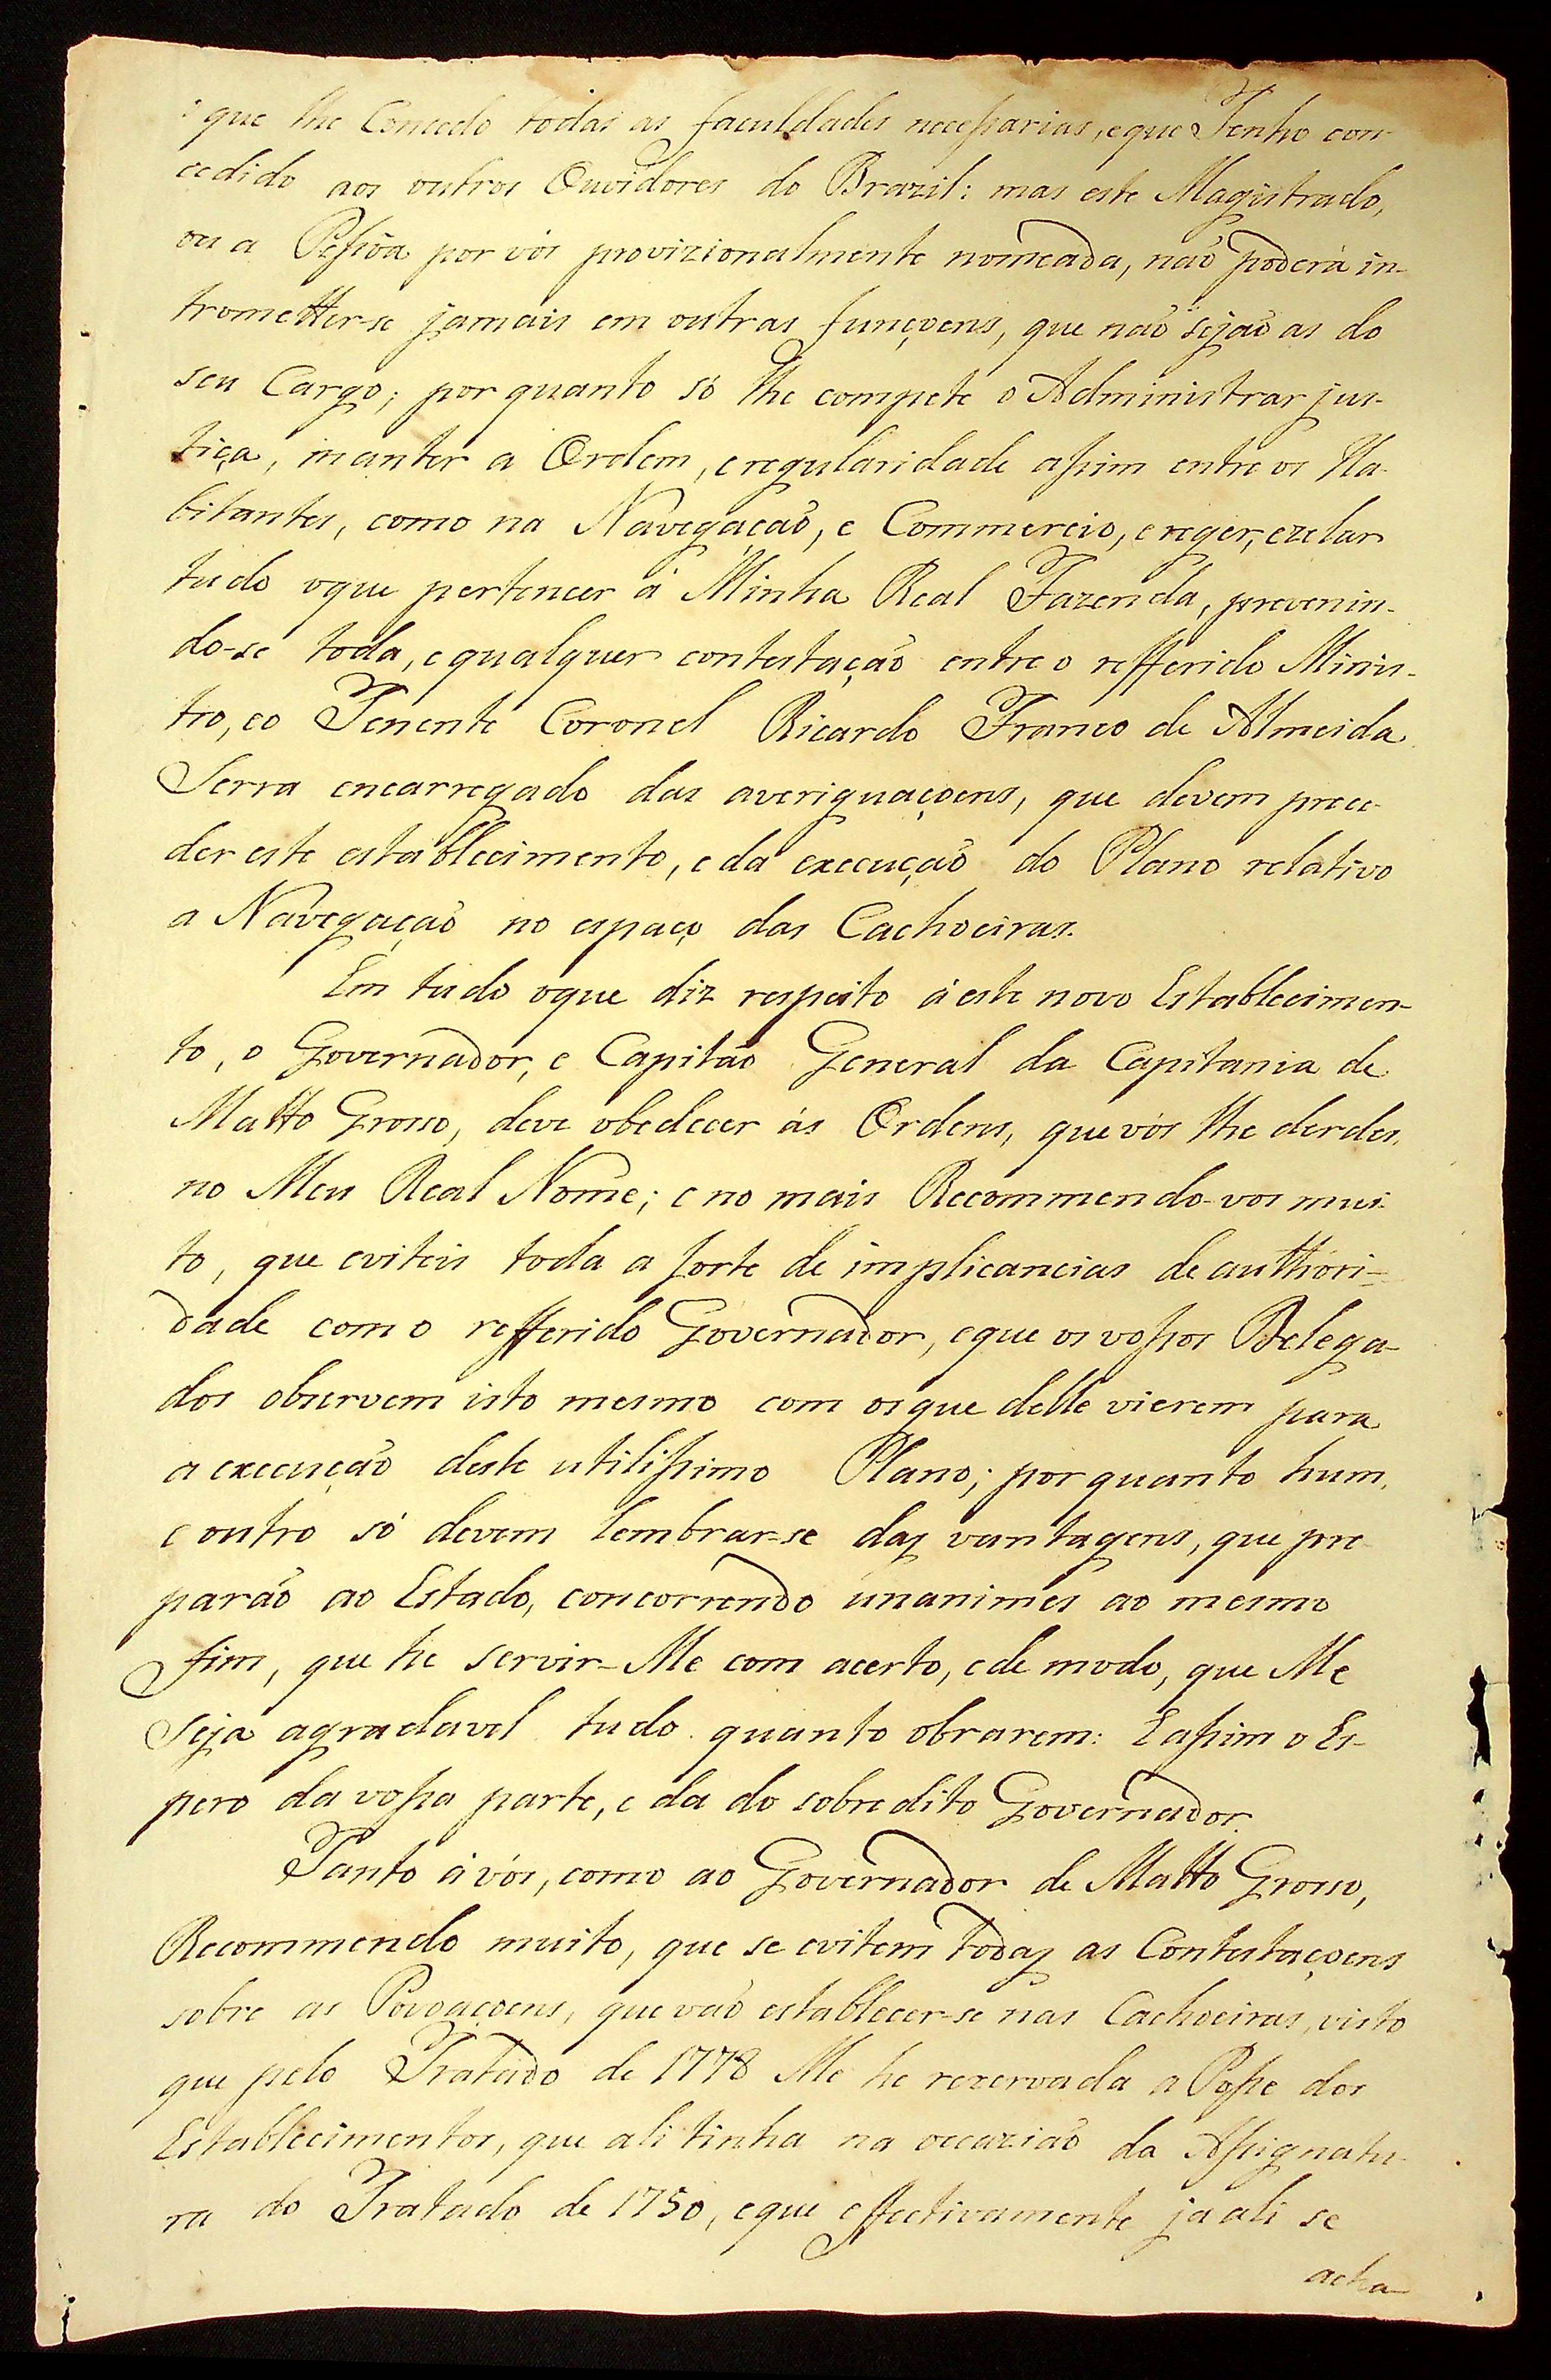 : que lhe Concedo todas as faculdades neceßarias, e que Tenho con-
cedido aos outros Ouvidores do Brazil: mas este Magistrado,
ou a Peßôa por vós provizionalmente nomeada, naõ poderá in-
trometter-se jamais em outras funçoens, que naõ sejaõ as do
seu Cargo; por quanto só lhe compete o Administrar jus-
tiça, manter a Ordem, e regularidade aßim entre os Ha-
bitantes, como na Navegaçaõ, e Commercio, e reger, e zelar
tudo oque pertencer á Minha Real Fazenda, prevenin-
do-se toda, e qualquer contestaçaõ entre o refferido Minis-
tro, eo Tenente Coronel Ricardo Franco de Almeida
Serra encarregado das averiguaçoens, que devem prece-
der este establecimento, e da execuçaõ do Plano relativo
a Navegaçaõ no espaço das Cachoeiras.
Em tudo oque diz respeito á este novo Establecimen-
to, o Governador, e Capitaõ General da Capitania de
Matto Grosso, deve obedecer ás Ordens, que vós lhe derdes,
no Meu Real Nome; e no mais Recommendo-vos mui-
to, que eviteis toda a sorte de implicancias de authori-
dade com o refferido Governador, e que os voßos Delega-
dos observem isto mesmo com os que delle vierem para
a execuçaõ deste utilißimo Plano; por quanto hum,
e outro só devem lembrar-se das vantagens, que pre-
paraõ ao Estado, concorrendo unanimes ao mesmo
fim, que he servir-Me com acerto, e de modo, que Me
seja agradavel tudo quanto obrarem: E aßim o Es-
pero da voßa parte, e da do sobredito Governador.
Tanto á vós, como ao Governador de Matto Grosso,
Recommendo muito, que se evitem todas as Contestaçoens
sobre as Povoaçoens, que vaõ establecer-se nas Cachoeiras, visto
que pelo Tratado de 1778 Me he rezervada a Poße dos
Establecimentos, que ali tinha na occaziaõ da Aßignatu-
ra do Tratado de 1750, e que effectivamente ja ali se
acha